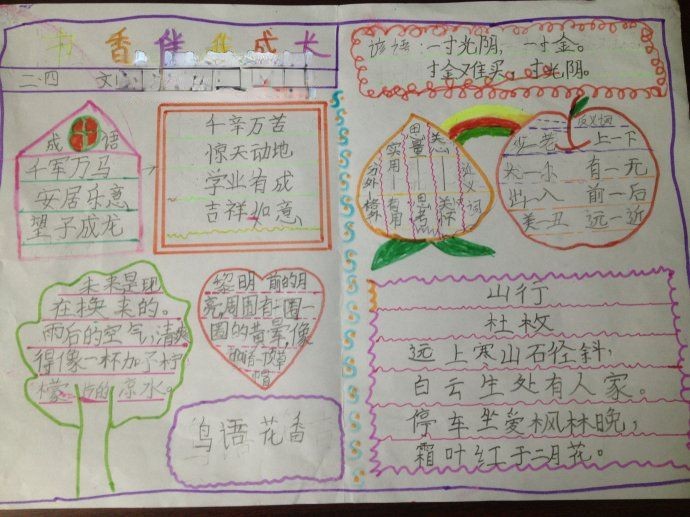 书香伴我成长
二.四 文
成语
千军万马
安居乐意
望子成龙
千辛万苦
惊天动地
学业有成
吉祥如意
未来是现
在换来的。
雨后的空气,清爽
得像一杯加了柠
檬片的凉水。
黎明前的月
亮,周围有一圈一
圈的黄晕,像
帽
鸟语花香
谚语:一寸光阴,一寸金。
寸金难买,寸光阴。
近义词
关心——关怀
思量——思考
实用——有用
分外——格外
反义词
少—老 上—下
大—小 有—无
出—入 前—后
美—丑 远—近
山行
杜牧
远上寒山石径斜,
白云生处有人家。
停车坐爱枫林晚,
霜叶红于二月花。